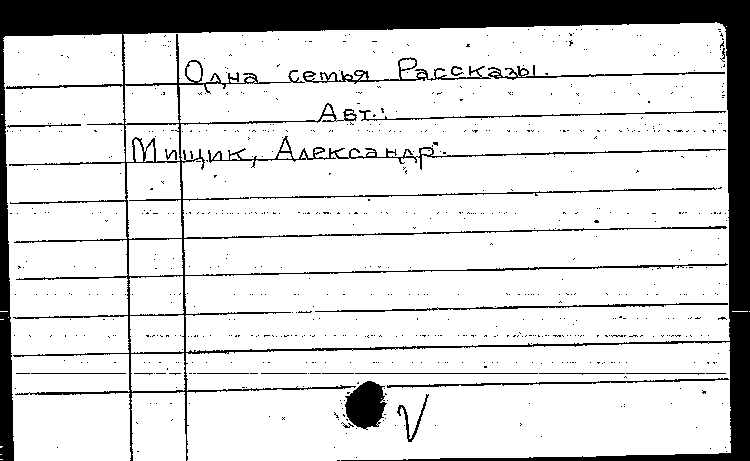 Одна семья Рассказы.
Авт.:
Мищик, Александр.
V